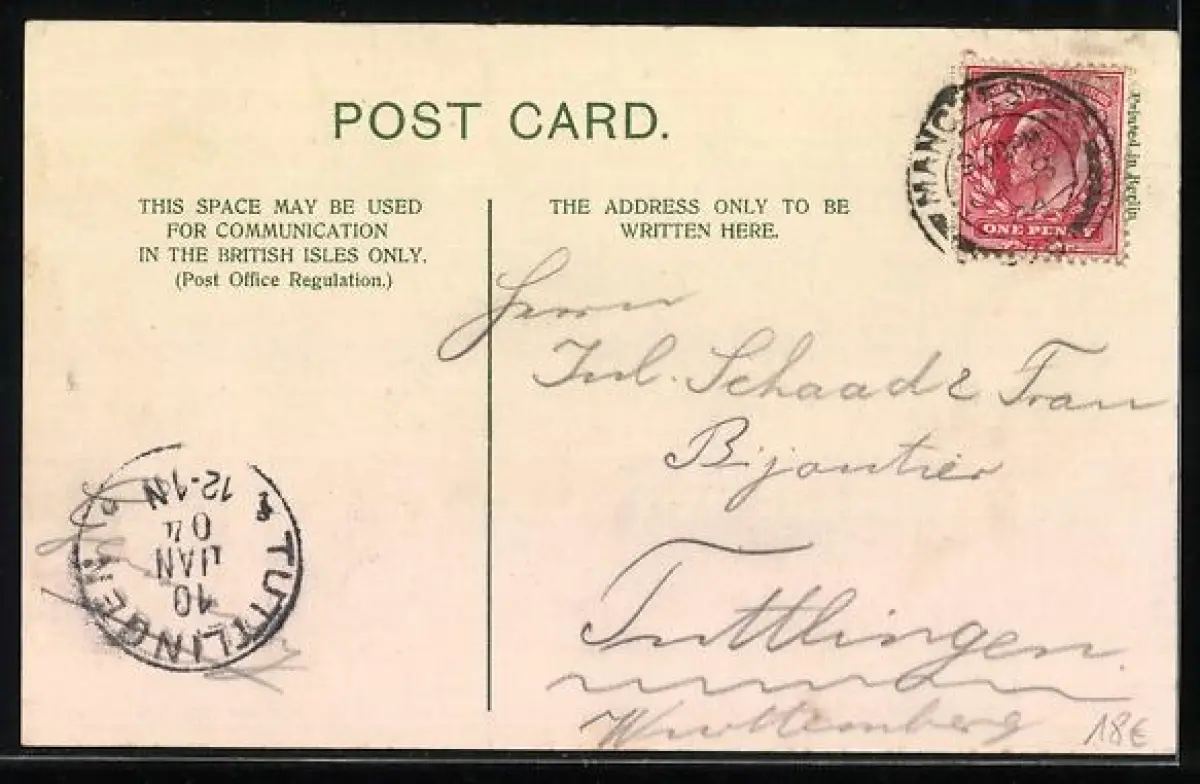 POST CARD.
THIS SPACE MAY BE USED
FOR COMMUNICATION
IN THE BRITISH ISLES ONLY.
(Post Office Regulation.)
THE ADDRESS ONLY TO BE
WRITTEN HERE.
ONE PENNY
Printed in Berlin
Herrn
Jul. Schaad & Frau
Bijoutier
Tuttlingen
Württemberg
18€
TUTTLINGEN
10
JAN
04
12-1N